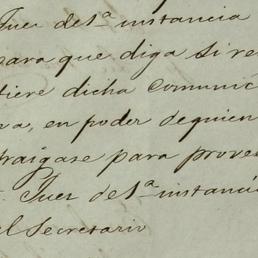 Juez de 1ª instancia
para que diga si re
tiere dicha comunic
va, en poder de quien
traigase para provee
Juez de 1ª instanci
el Secretario